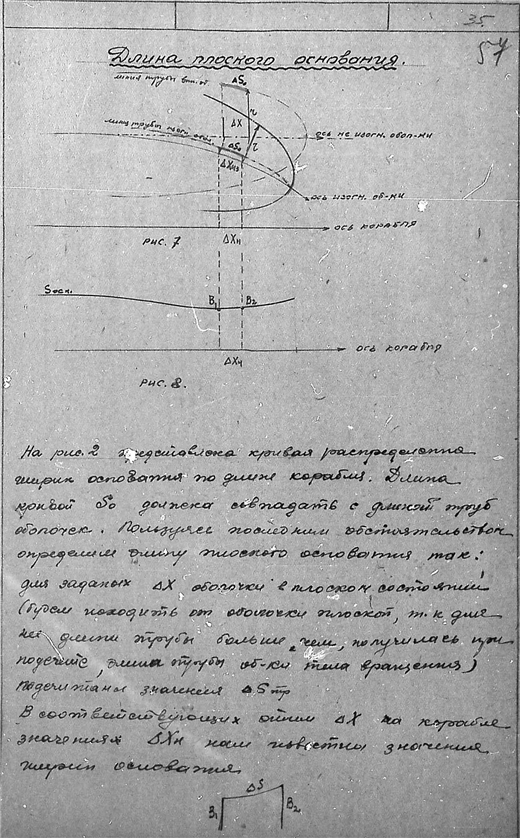 35
57
Длина плоского основания.
линия трубы
ΔS₀
r
ΔX
ось не изогн. обол-ки
ΔS₀
r
ΔXн₃
ось изогн. об-ки
ось корабля
рис. 7
ΔXн
Sосн.
B₁
B₂
ось корабля
ΔXн
рис. 8.
На рис. 2 представлена кривая распределения
ширин основания по длине корабля. Длина
кривой S₀ должна совпадать с длиной труб
оболочек. Пользуясь последним обстоятельством
определяем длину плоского основания так:
для заданых ΔX оболочки в плоском состоянии
(будем находить от оболочки плоской, т.к. для
неё длина трубы больше, чем, получилась при
подсчёте, длина трубы об-ки тела вращения)
подсчитаны значения ΔSтр
В соответствующих этим ΔX на корабле
значениях ΔXн нам известны значения
ширин основания
ΔS
B₁
B₂